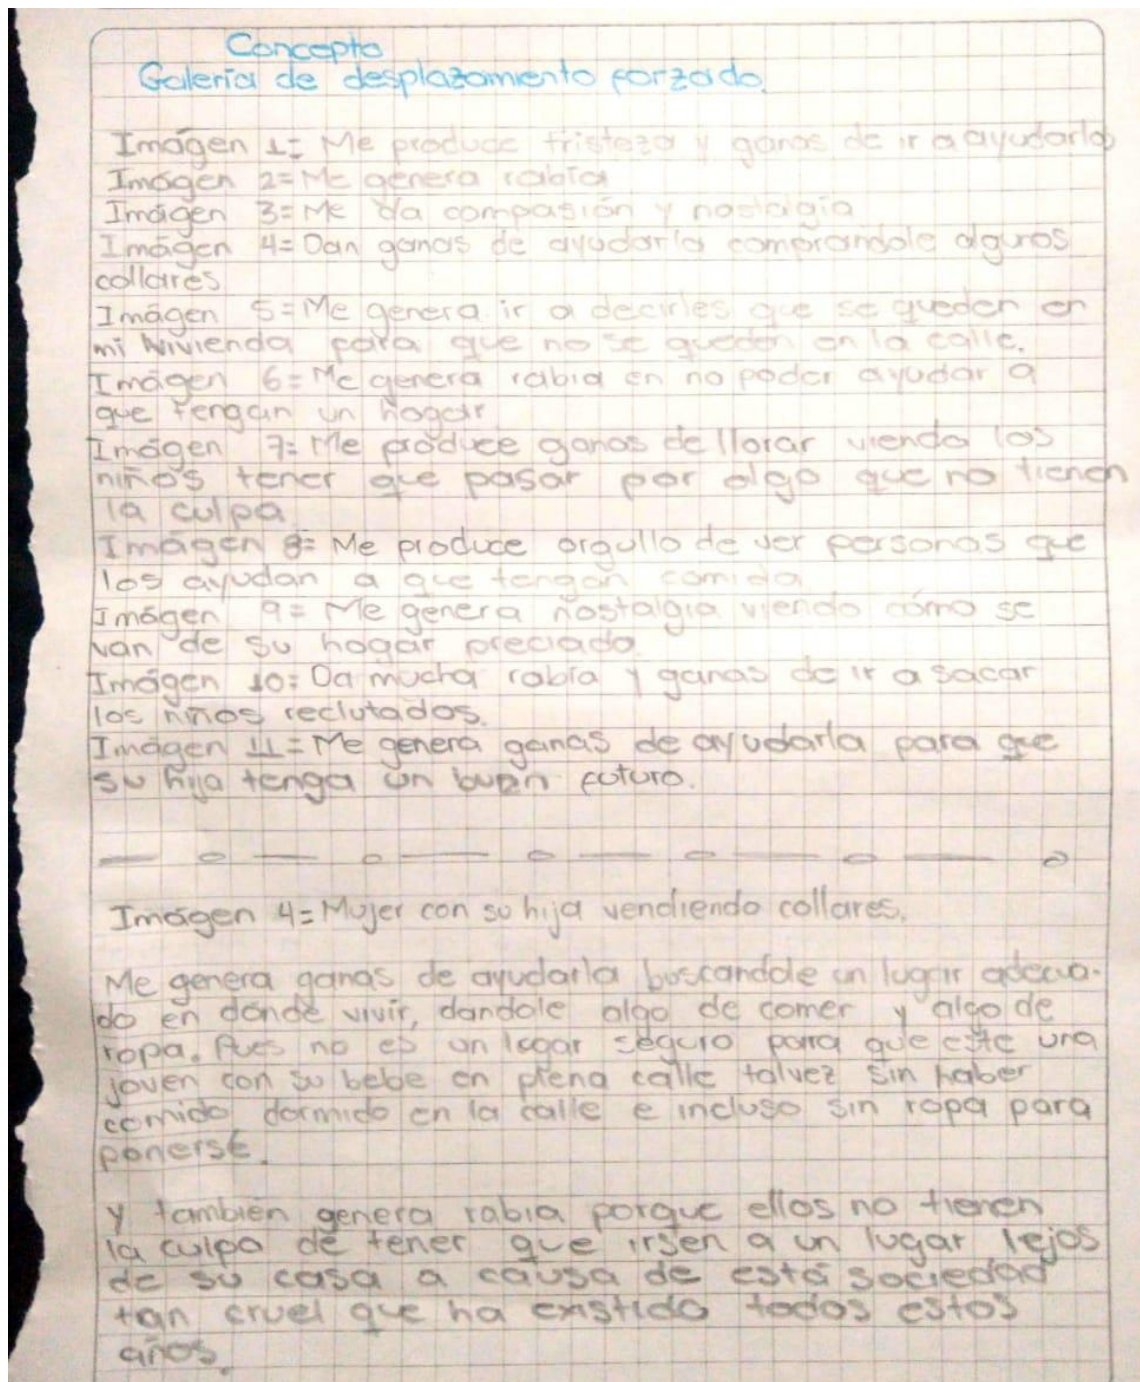 Concepto
Galería de desplazamiento forzado.
Imágen 1= Me produce tristeza y ganas de ir a ayudarlos
Imágen 2= Me genera rabia
Imágen 3= Me da compasión y nostalgia
Imágen 4= Dan ganas de ayudarla comprandole algunos
collares
Imágen 5= Me genera ir a decirles que se queden en
mi vivienda para que no se queden en la calle.
Imágen 6= Me genera rabia en no poder ayudar a
que tengan un hogar
Imágen 7= Me produce ganas de llorar viendo los
niños tener que pasar por algo que no tienen
la culpa
Imágen 8= Me produce orgullo de ver personas que
los ayudan a que tengan comida
Imágen 9= Me genera nostalgia viendo cómo se
van de su hogar preciado
Imágen 10= Da mucha rabia y ganas de ir a sacar
los niños reclutados.
Imágen 11= Me genera ganas de ayudarla para que
su hija tenga un buen futuro.
Imágen 4= Mujer con su hija vendiendo collares.
Me genera ganas de ayudarla buscandole un lugar adecua-
do en donde vivir, dandole algo de comer y algo de
ropa. Pues no es un lugar seguro para que este una
joven con su bebe en plena calle talvez sin haber
comido dormido en la calle e incluso sin ropa para
ponerse.
y también genera rabia porque ellos no tienen
la culpa de tener que irsen a un lugar lejos
de su casa a causa de está sociedad
tan cruel que ha existido todos estos
años.